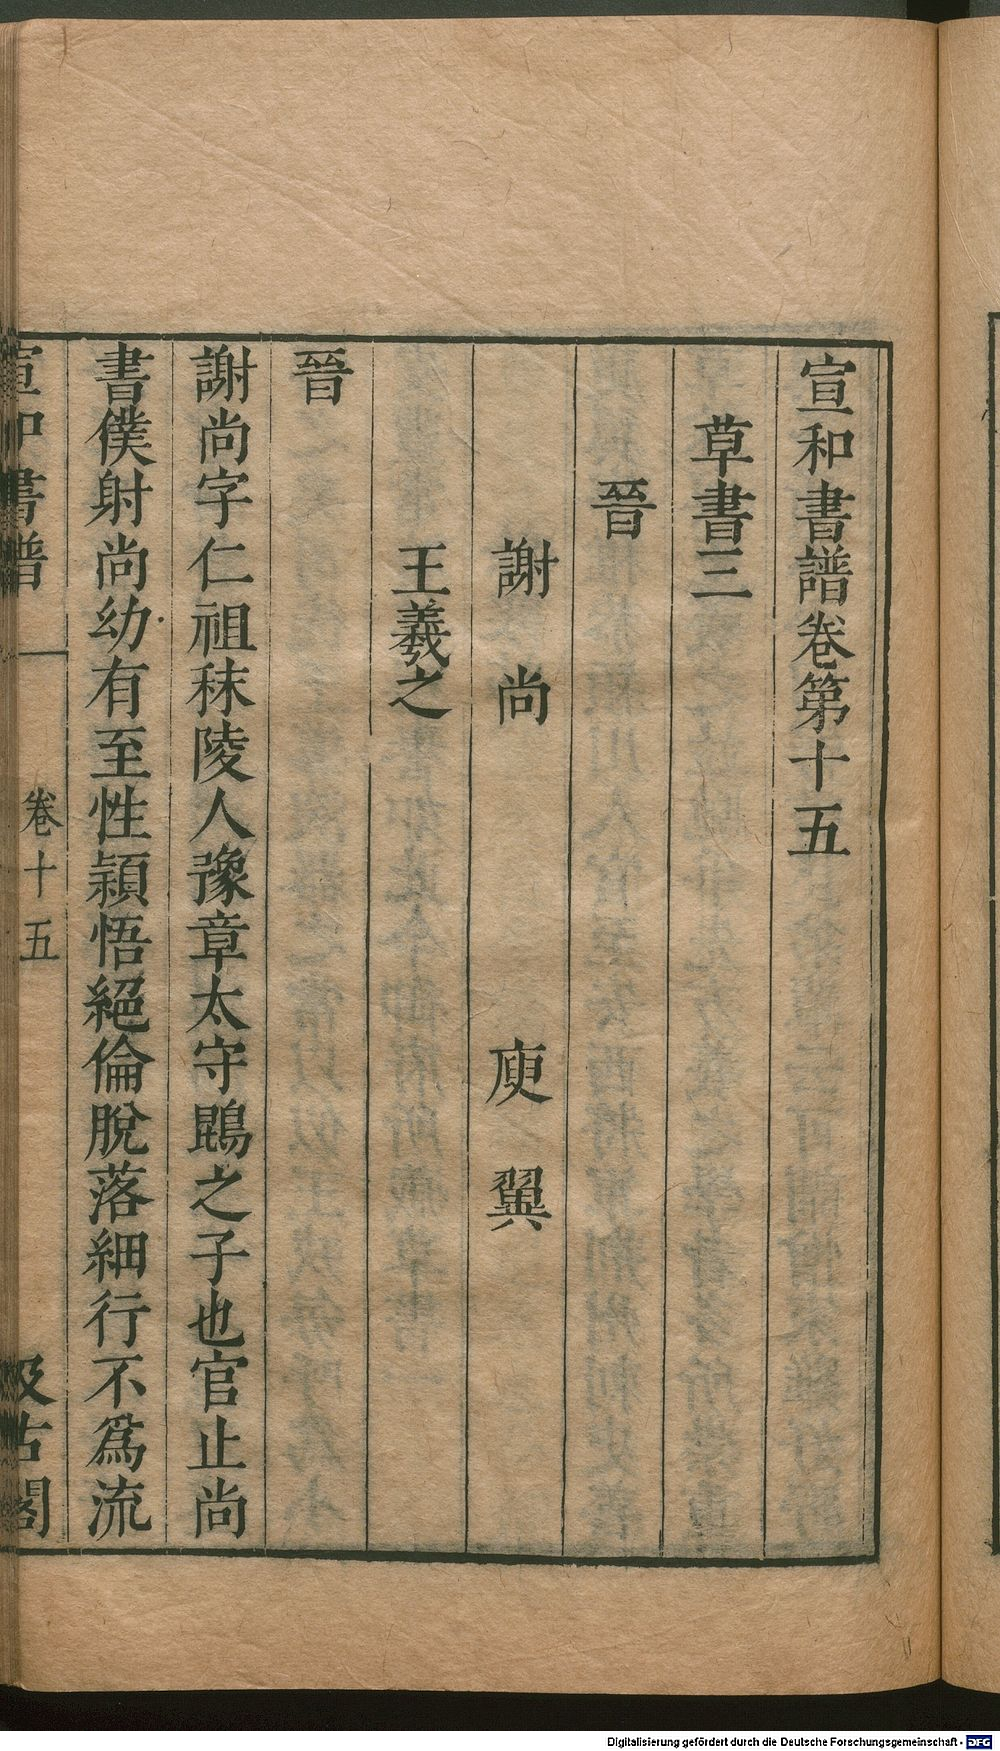 宣和書譜卷第十五
草書三
晉
謝尚 庾翼
王羲之
晉
謝尚字仁祖秣陵人豫章太守鵾之子也官止尚
書僕射尚幼有至性頴悟絕倫脫落細行不爲流
宣和書譜 卷十五 汲古閣
Digitalisierung gefördert durch die Deutsche Forschungsgemeinschaft - DFG